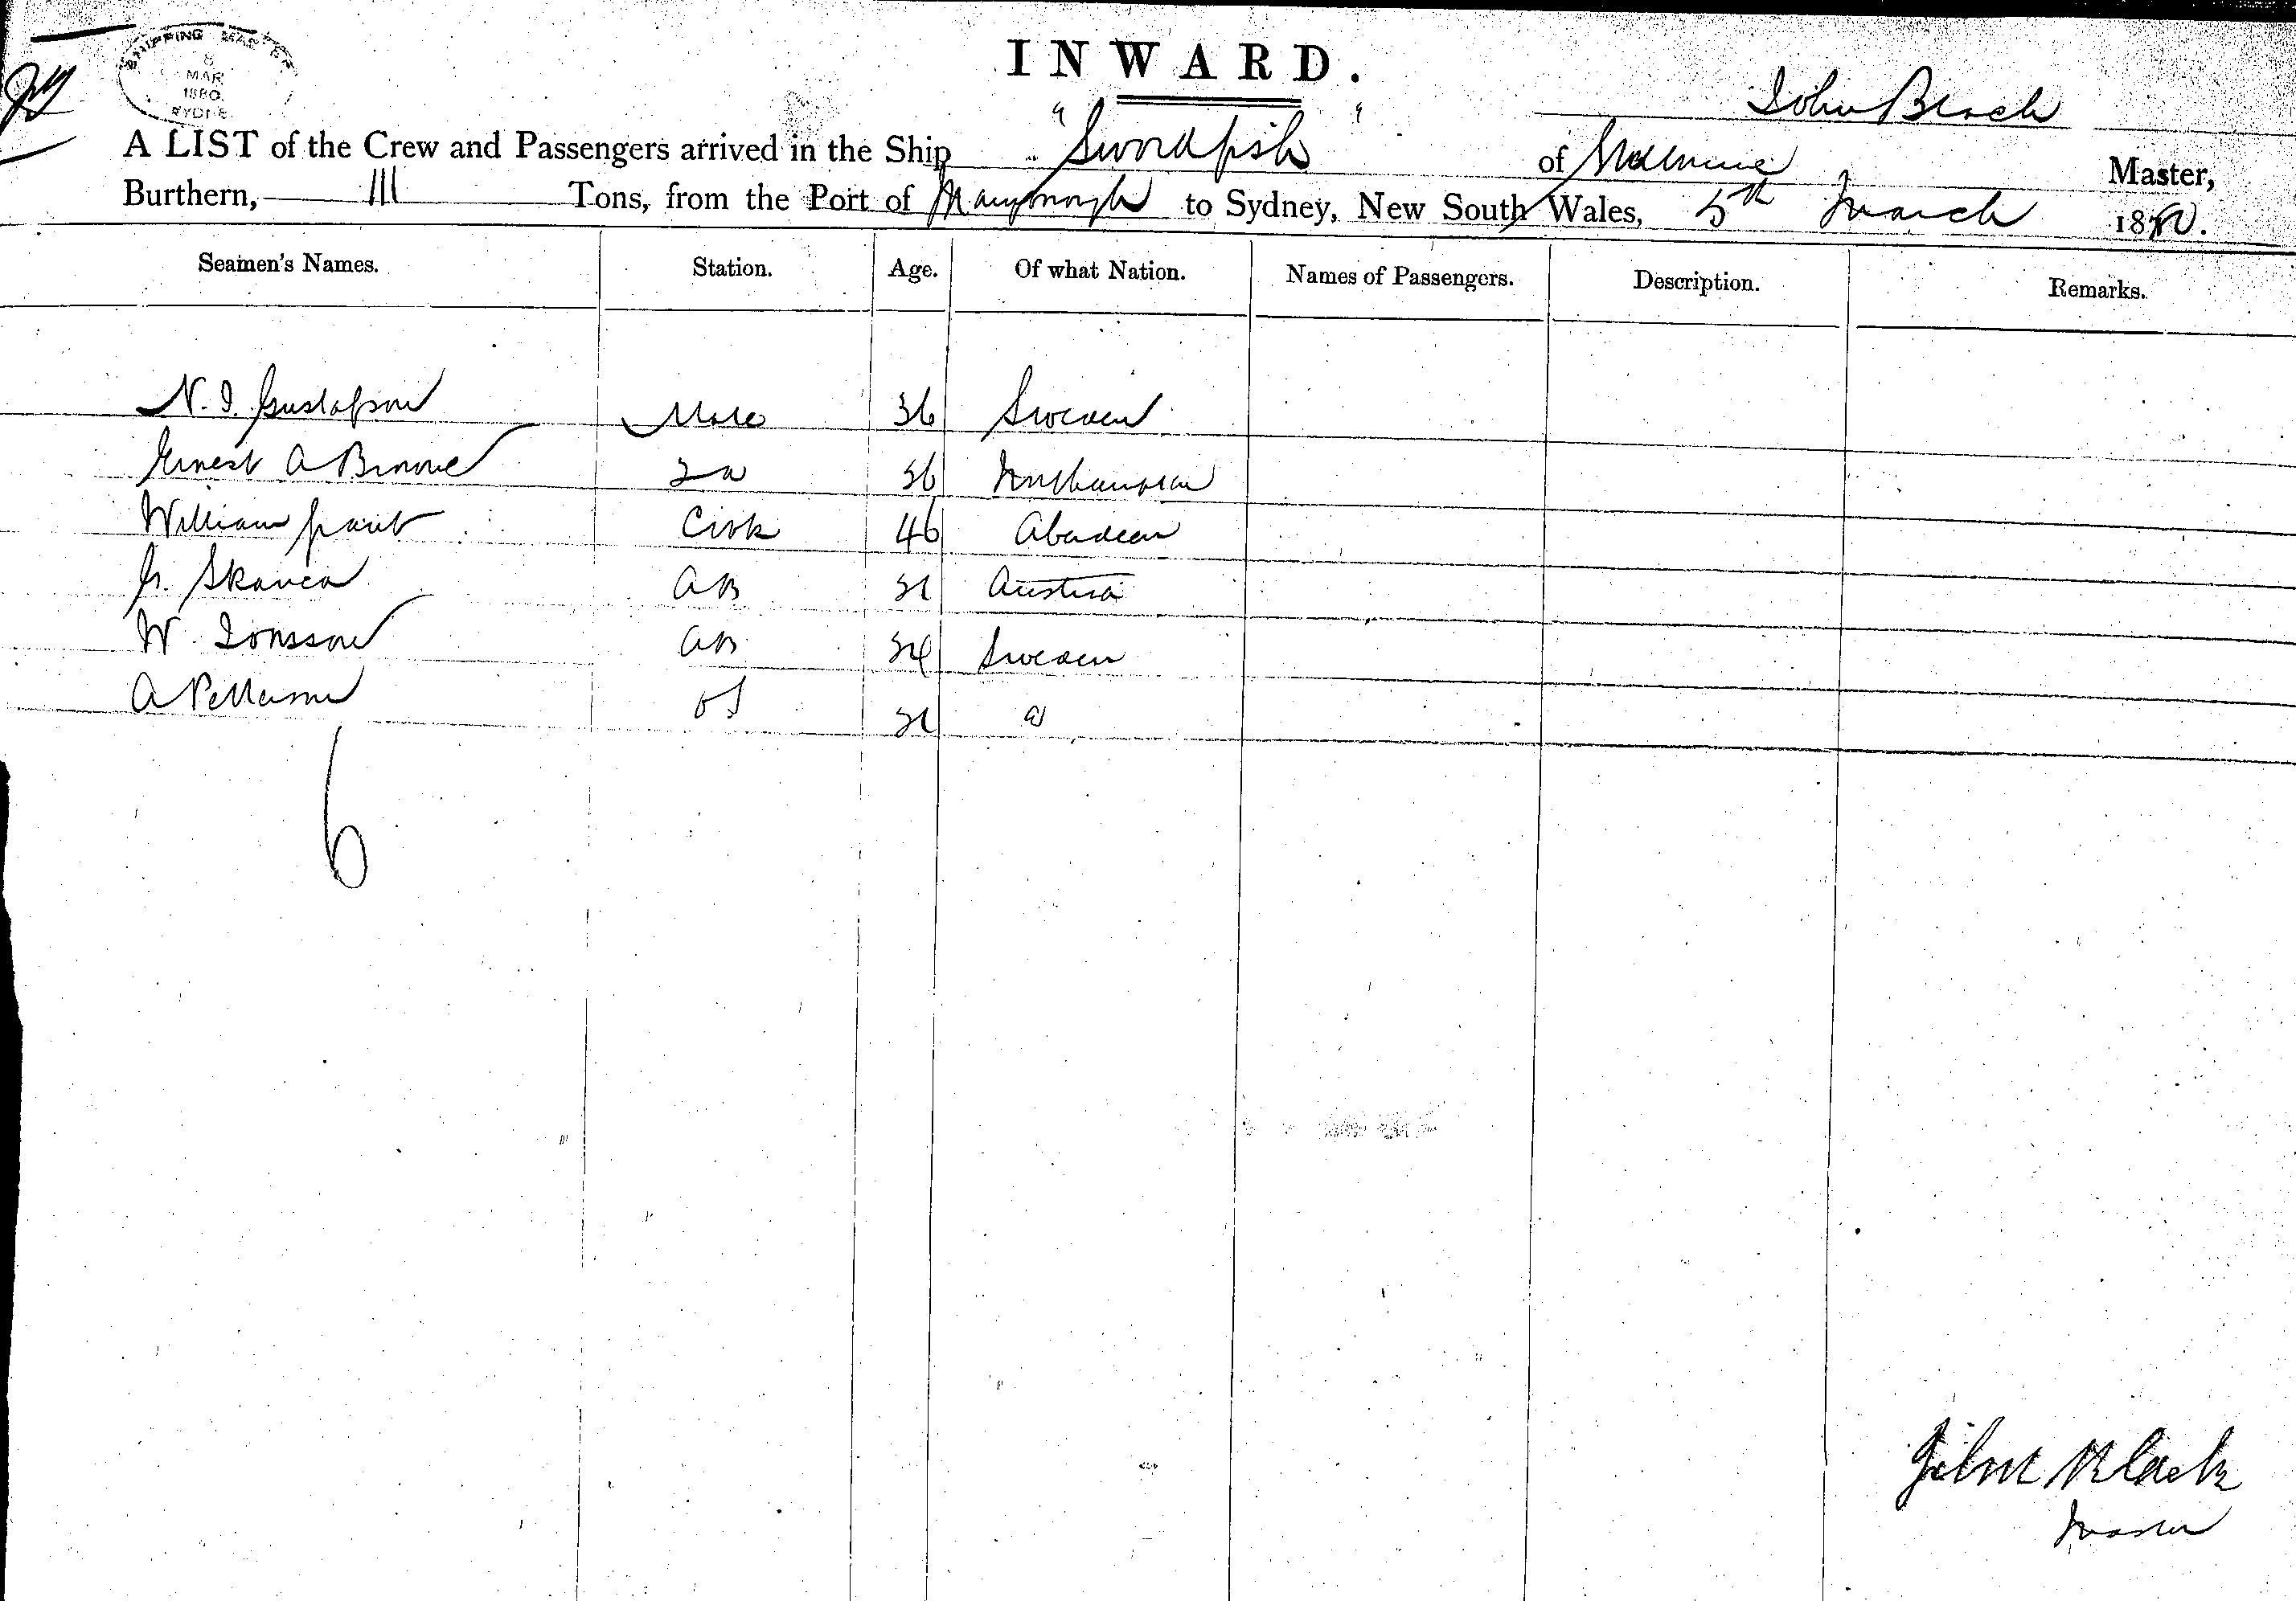 SHIPPING MASTER
8
MAR
1880
SYDNE
INWARD.
John Black
A LIST of the Crew and Passengers arrived in the Ship "Swordfish" of Melbourne Master,
Burthern, 111 Tons, from the Port of Maryborough to Sydney, New South Wales, 5th March 1880.
Seamen's Names. Station. Age. Of what Nation. Names of Passengers. Description. Remarks.
N. I. Gustafson Mate 36 Sweden
Ernest A Browne 36
William Grant Cook 46 Aberdeen
G. Skanca AB Austria
W. Jonsson AB Sweden
A Petterson OS
6
John Black
Master